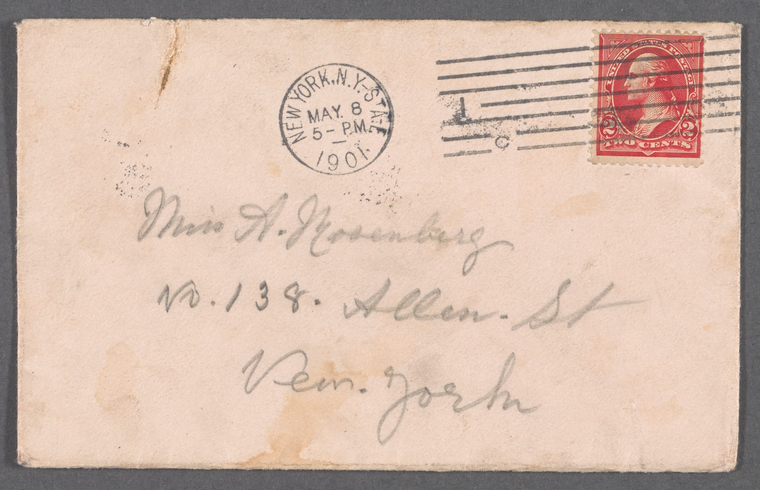 NEW YORK, N.Y. STA. E
MAY. 8
5 - P.M.
1901
L
C
UNITED STATES POSTAGE
2 2
TWO CENTS
Miss A. Rosenberg
No. 138. Allen. St
New. York